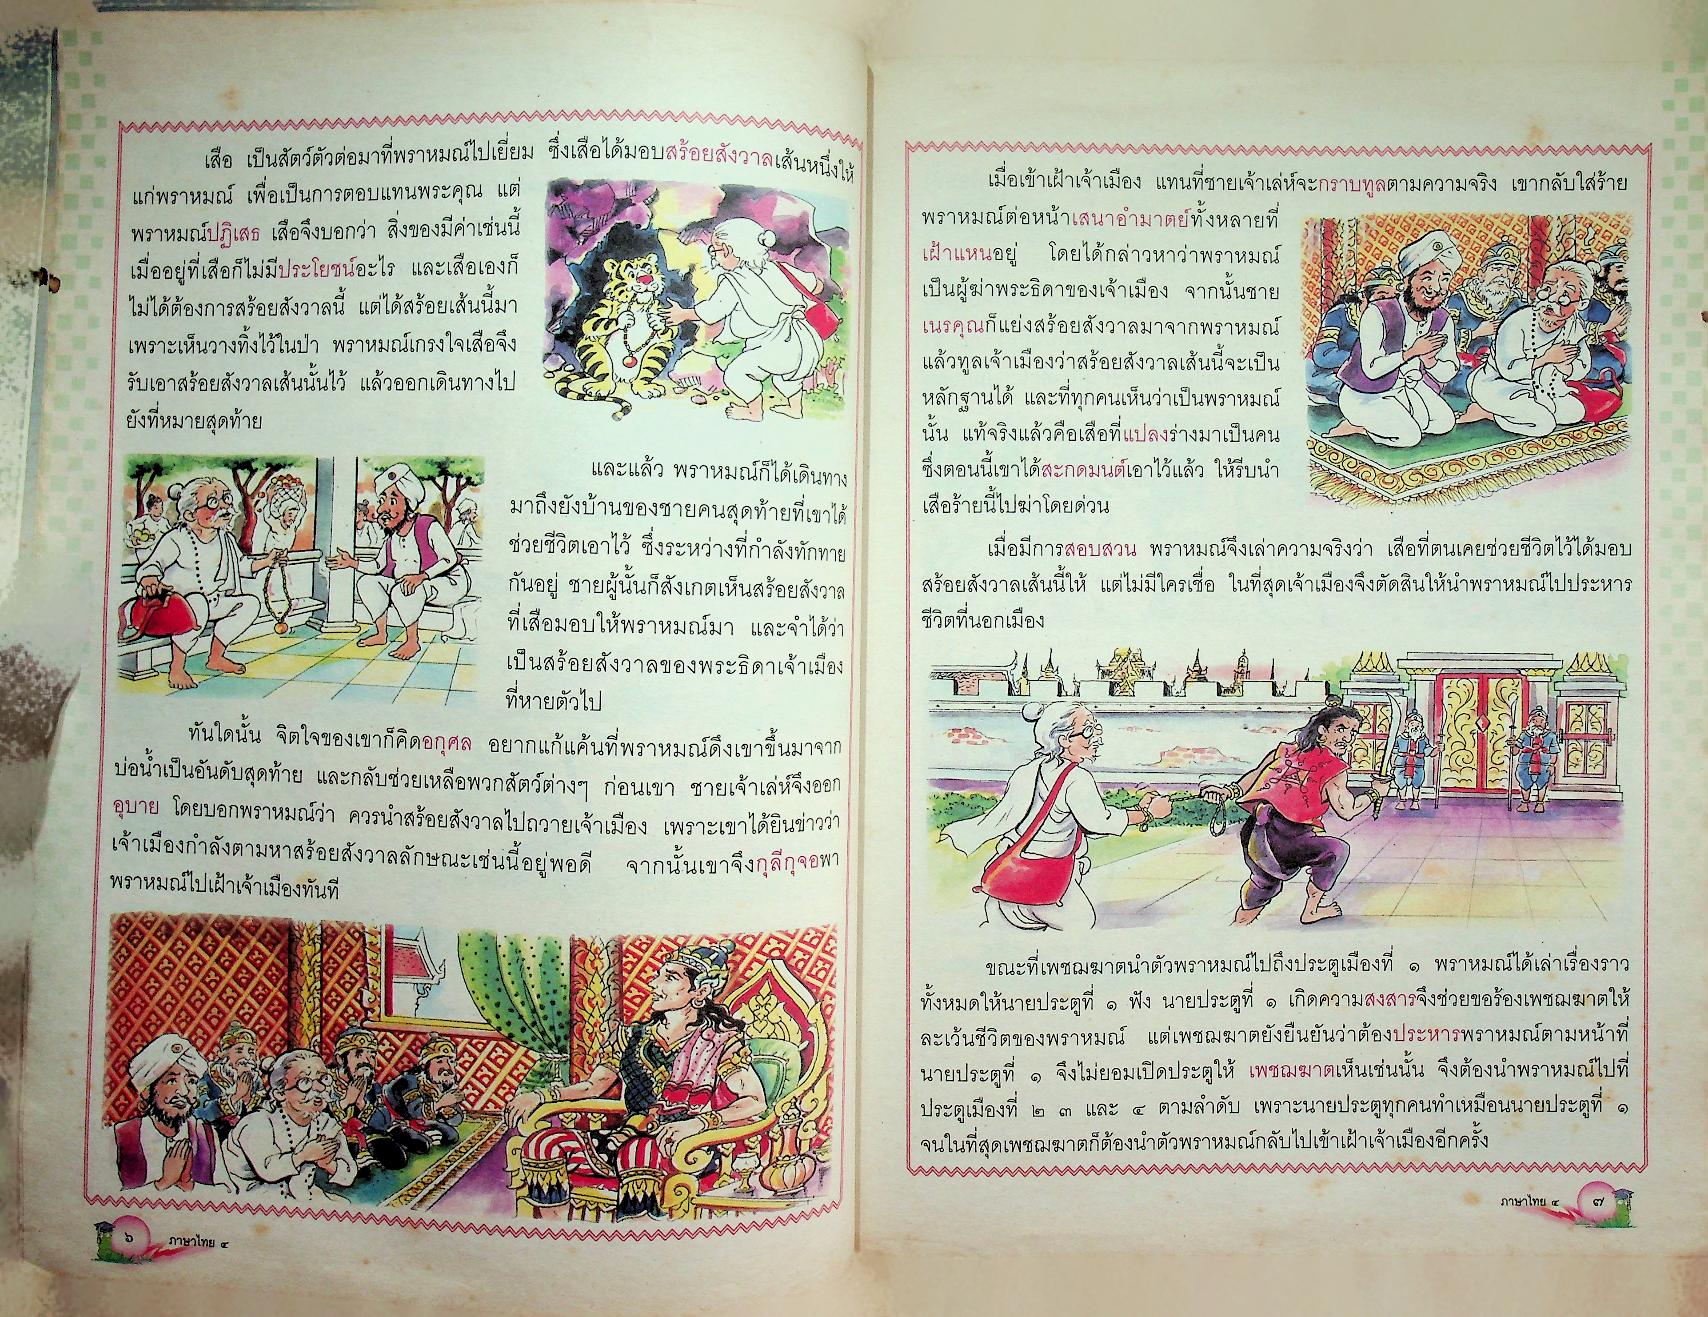 เสือ เป็นสัตว์ตัวต่อมาที่พราหมณ์ไปเยี่ยม ซึ่งเสือได้มอบสร้อยสังวาลเส้นหนึ่งให้
แก่พราหมณ์ เพื่อเป็นการตอบแทนพระคุณ แต่
พราหมณ์ปฏิเสธ เสือจึงบอกว่า สิ่งของมีค่าเช่นนี้
เมื่ออยู่ที่เสือก็ไม่มีประโยชน์อะไร และเสือเองก็
ไม่ได้ต้องการสร้อยสังวาลนี้ แต่ได้สร้อยเส้นนี้มา
เพราะเห็นวางทิ้งไว้ในป่า พราหมณ์เกรงใจเสือจึง
รับเอาสร้อยสังวาลเส้นนั้นไว้ แล้วออกเดินทางไป
ยังที่หมายสุดท้าย
และแล้ว พราหมณ์ก็ได้เดินทาง
มาถึงยังบ้านของชายคนสุดท้ายที่เขาได้
ช่วยชีวิตเอาไว้ ซึ่งระหว่างที่กำลังทักทาย
กันอยู่ ชายผู้นั้นก็สังเกตเห็นสร้อยสังวาล
ที่เสือมอบให้พราหมณ์มา และจำได้ว่า
เป็นสร้อยสังวาลของพระธิดาเจ้าเมือง
ที่หายตัวไป
ทันใดนั้น จิตใจของเขาก็คิดอกุศล อยากแก้แค้นที่พราหมณ์ดึงเขาขึ้นมาจาก
บ่อน้ำเป็นอันดับสุดท้าย และกลับช่วยเหลือพวกสัตว์ต่างๆ ก่อนเขา ชายเจ้าเล่ห์จึงออก
อุบาย โดยบอกพราหมณ์ว่า ควรนำสร้อยสังวาลไปถวายเจ้าเมือง เพราะเขาได้ยินข่าวว่า
เจ้าเมืองกำลังตามหาสร้อยสังวาลลักษณะเช่นนี้อยู่พอดี จากนั้นเขาจึงกุลีกุจอพา
พราหมณ์ไปเฝ้าเจ้าเมืองทันที
๖ ภาษาไทย ๔
เมื่อเข้าเฝ้าเจ้าเมือง แทนที่ชายเจ้าเล่ห์จะกราบทูลตามความจริง เขากลับใส่ร้าย
พราหมณ์ต่อหน้าเสนาอำมาตย์ทั้งหลายที่
เฝ้าแหนอยู่ โดยได้กล่าวหาว่าพราหมณ์
เป็นผู้ฆ่าพระธิดาของเจ้าเมือง จากนั้นชาย
เนรคุณก็แย่งสร้อยสังวาลมาจากพราหมณ์
แล้วทูลเจ้าเมืองว่าสร้อยสังวาลเส้นนี้จะเป็น
หลักฐานได้ และที่ทุกคนเห็นว่าเป็นพราหมณ์
นั้น แท้จริงแล้วคือเสือที่แปลงร่างมาเป็นคน
ซึ่งตอนนี้เขาได้สะกดมนต์เอาไว้แล้ว ให้รีบนำ
เสือร้ายนี้ไปฆ่าโดยด่วน
เมื่อมีการสอบสวน พราหมณ์จึงเล่าความจริงว่า เสือที่ตนเคยช่วยชีวิตไว้ได้มอบ
สร้อยสังวาลเส้นนี้ให้ แต่ไม่มีใครเชื่อ ในที่สุดเจ้าเมืองจึงตัดสินให้นำพราหมณ์ไปประหาร
ชีวิตที่นอกเมือง
ขณะที่เพชฌฆาตนำตัวพราหมณ์ไปถึงประตูเมืองที่ ๑ พราหมณ์ได้เล่าเรื่องราว
ทั้งหมดให้นายประตูที่ ๑ ฟัง นายประตูที่ ๑ เกิดความสงสารจึงช่วยขอร้องเพชฌฆาตให้
ละเว้นชีวิตของพราหมณ์ แต่เพชฌฆาตยังยืนยันว่าต้องประหารพราหมณ์ตามหน้าที่
นายประตูที่ ๑ จึงไม่ยอมเปิดประตูให้ เพชฌฆาตเห็นเช่นนั้น จึงต้องนำพราหมณ์ไปที่
ประตูเมืองที่ ๒ ๓ และ ๔ ตามลำดับ เพราะนายประตูทุกคนทำเหมือนนายประตูที่ ๑
จนในที่สุดเพชฌฆาตก็ต้องนำตัวพราหมณ์กลับไปเข้าเฝ้าเจ้าเมืองอีกครั้ง
ภาษาไทย ๔ ๗